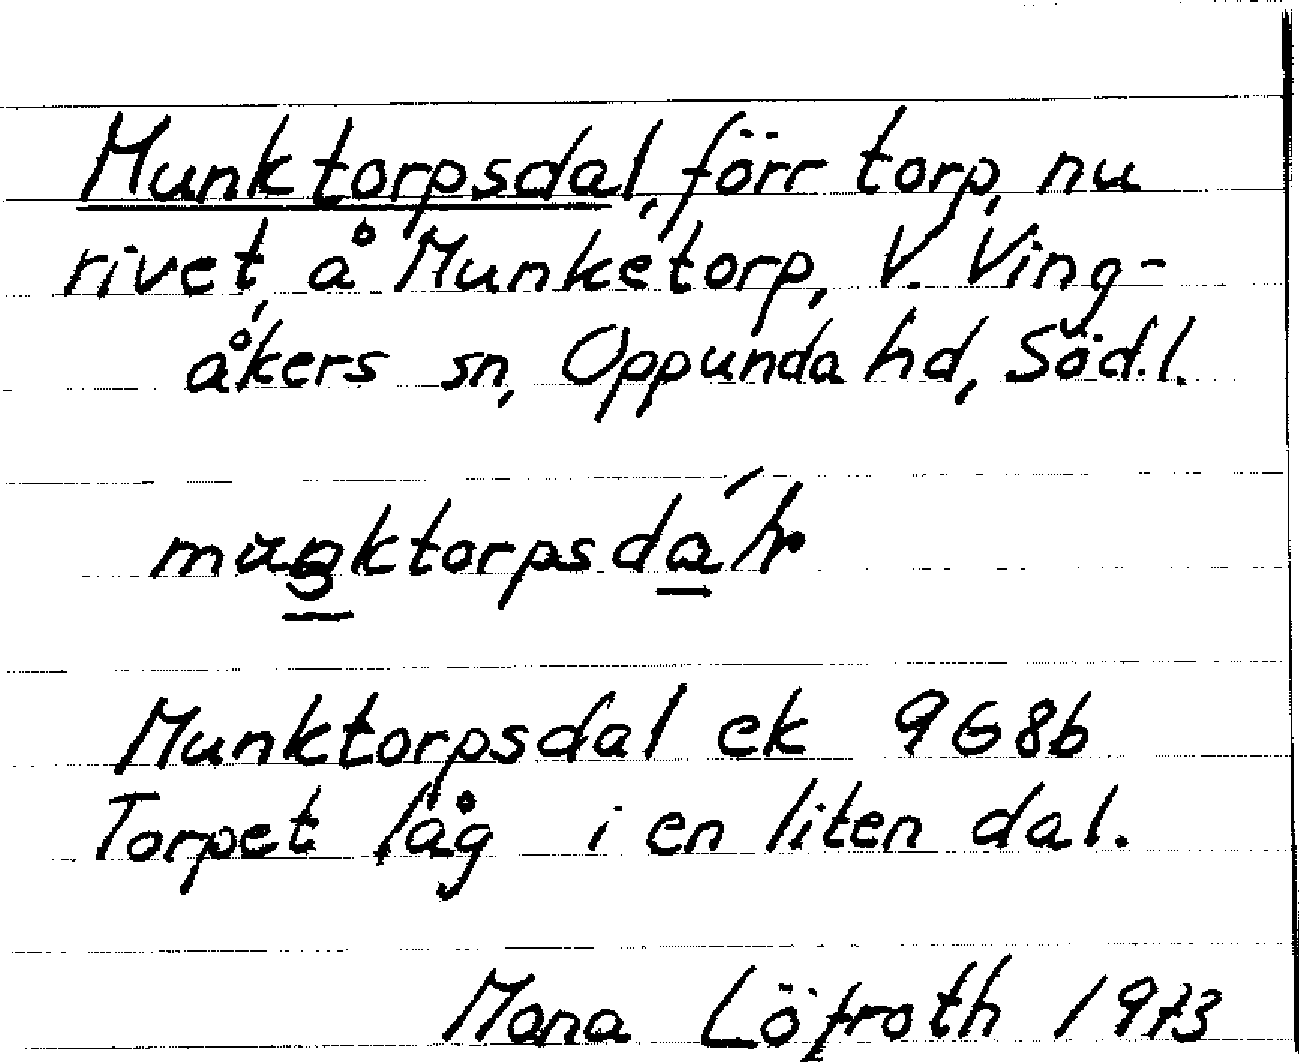 Munktorpsdal, förr torp, nu
rivet, å Munketorp, V. Ving-
åkers sn, Oppunda hd, Söd.l.
Munktorpsdal ek 9G8b
Torpet låg i en liten dal.
Mona Löfroth 1973